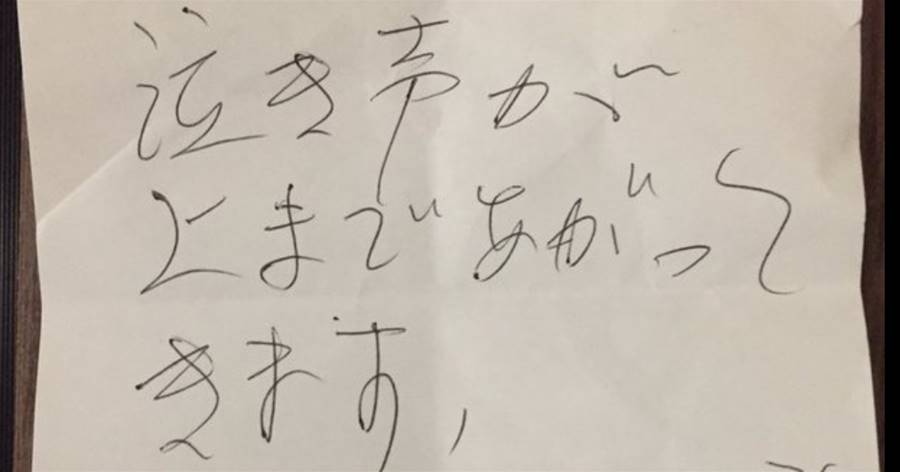 泣き声が
上まであがって
きます、